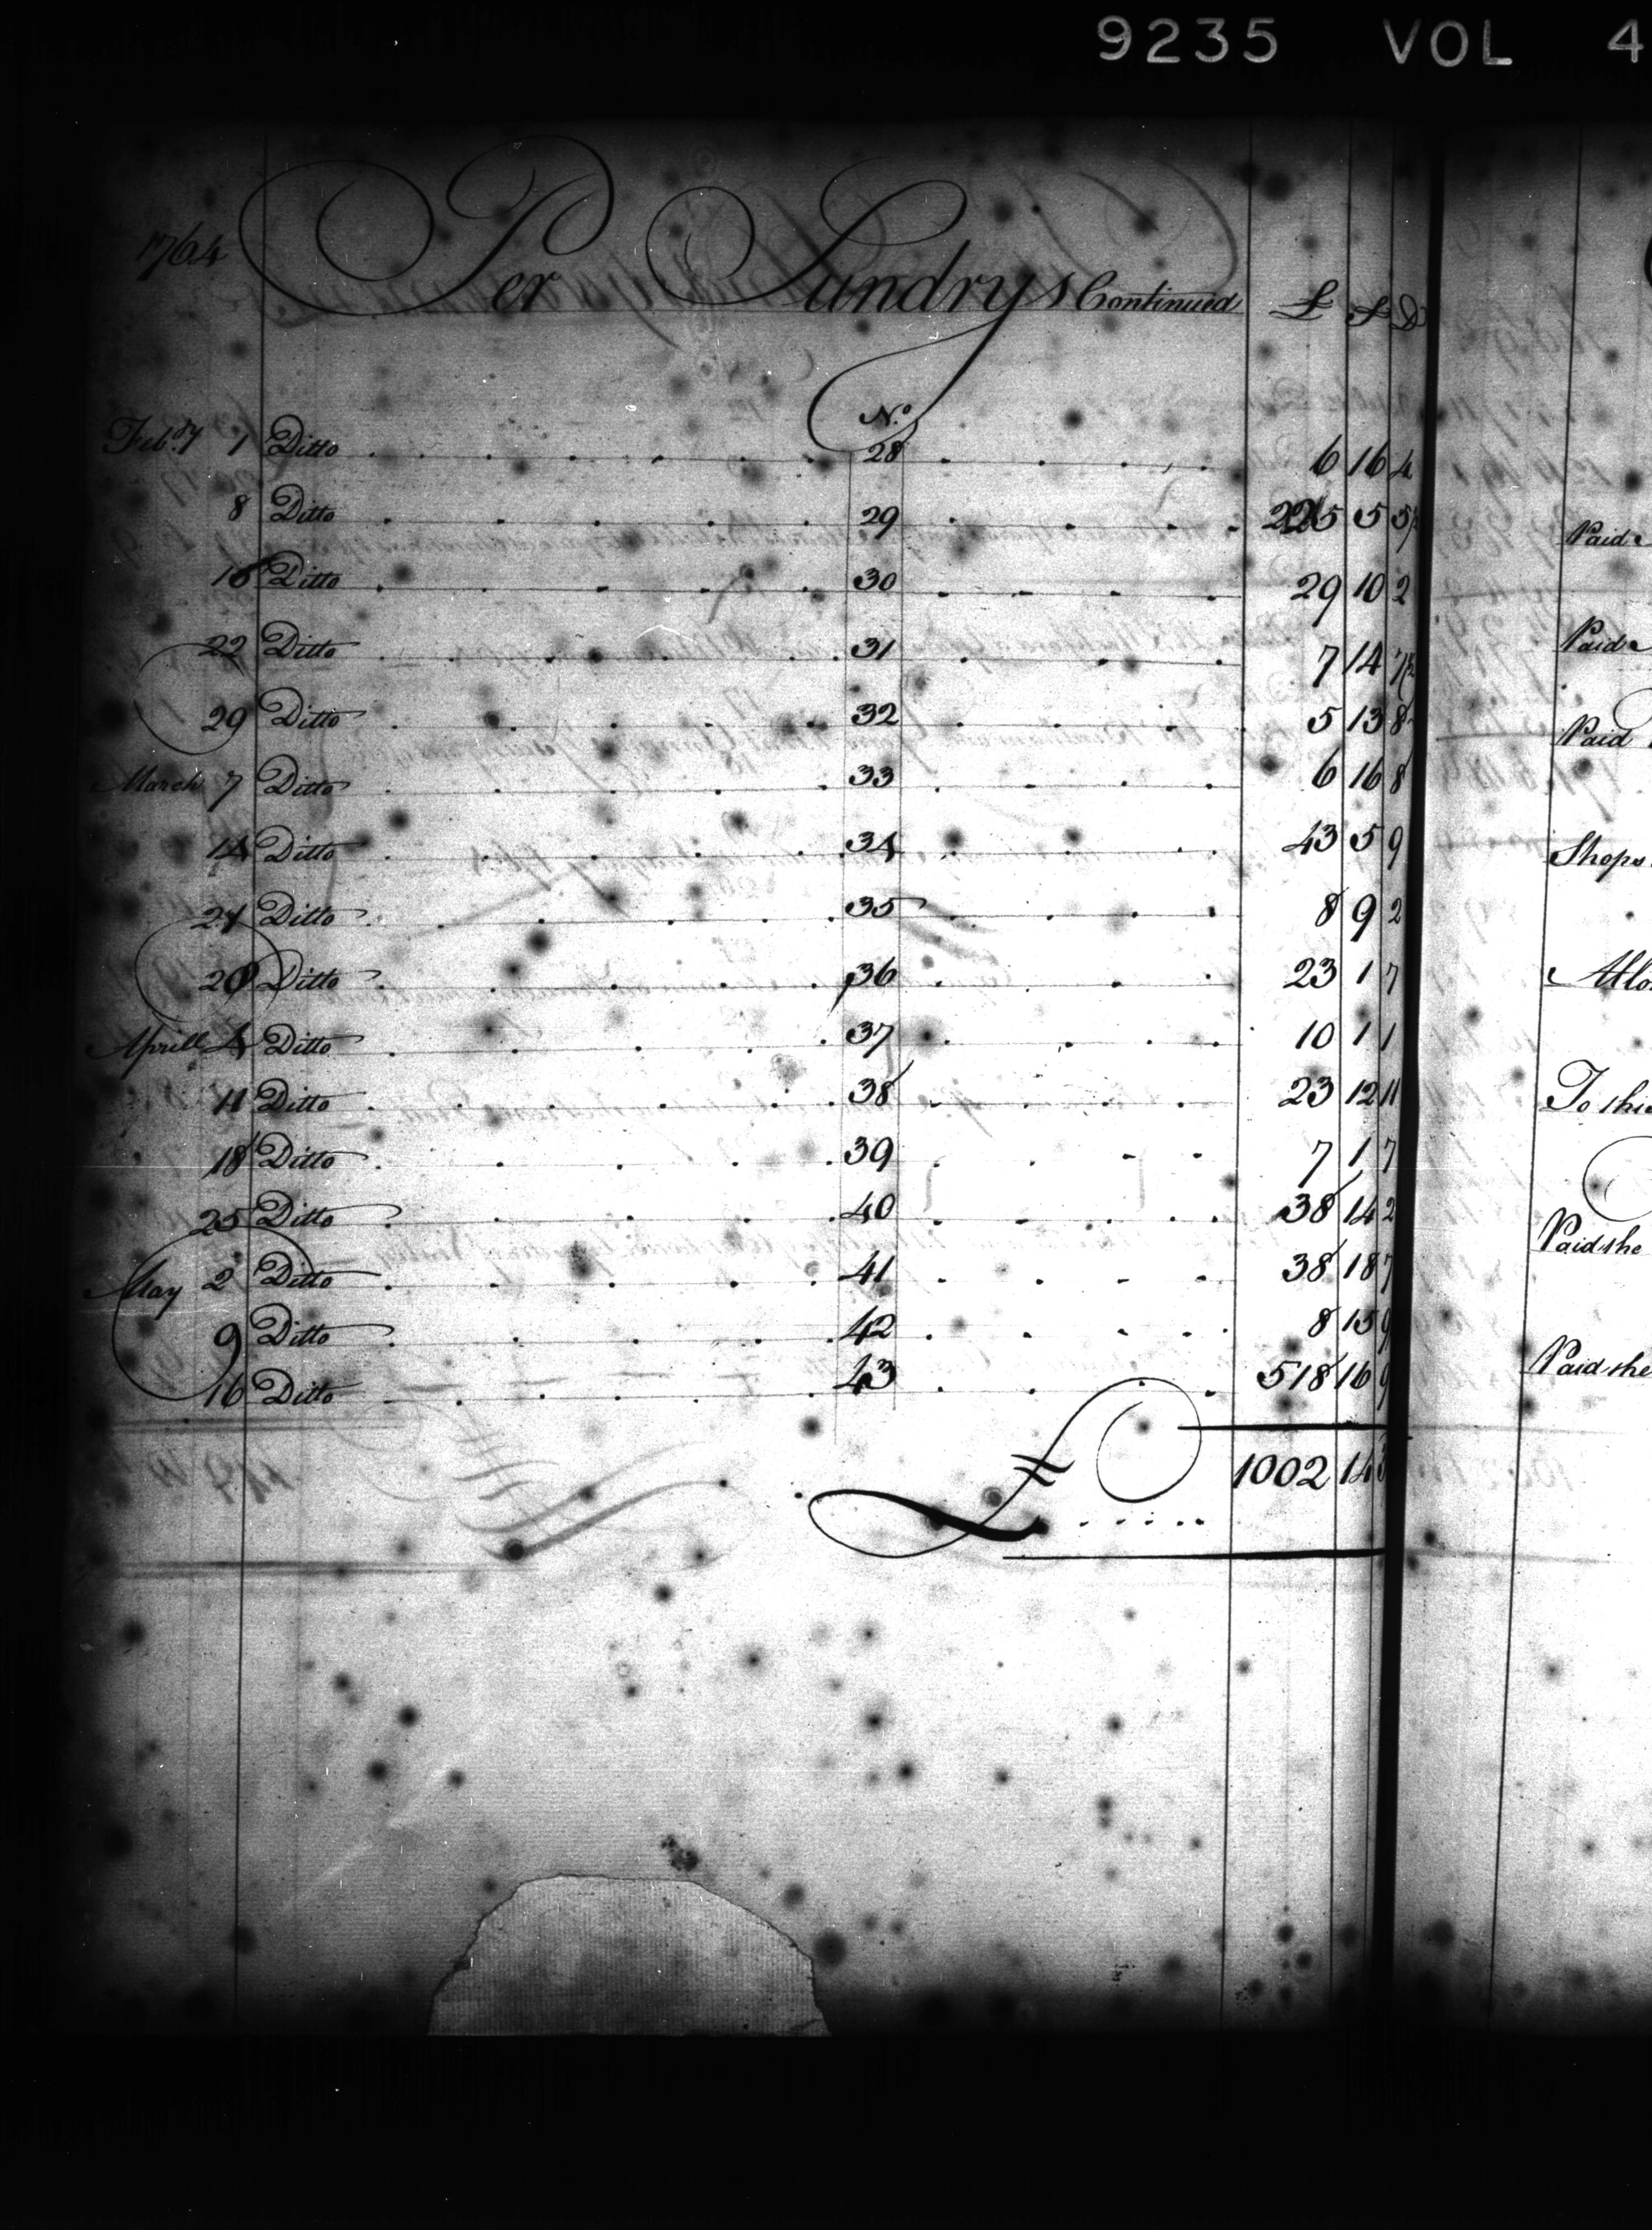 9235 VOL 4
1764 Per Sundrys Continued £ S D
No.
Feb.ry 1 Ditto 28 6 16 4
8 Ditto 29 225 5 5½
Ditto 30 29 10 2
22 Ditto 31 7 14 7½
29 Ditto 32 5 13 8
March 7 Ditto 33 6 16 8
14 Ditto 34 43 5 9
21 Ditto 35 8 9 2
Ditto 36 23 1 7
Aprill 4 Ditto 37 10 1 1
11 Ditto 38 23 12 11
18 Ditto 39 7 1 7
25 Ditto 40 38 14 2
May 2 Ditto 41 38 18 7
9 Ditto 42 8 15 9
16 Ditto 43 518 16 9
£ 1002 14
Paid
Paid
Paid
Shops
Allo
To the
Paid the
Paid the